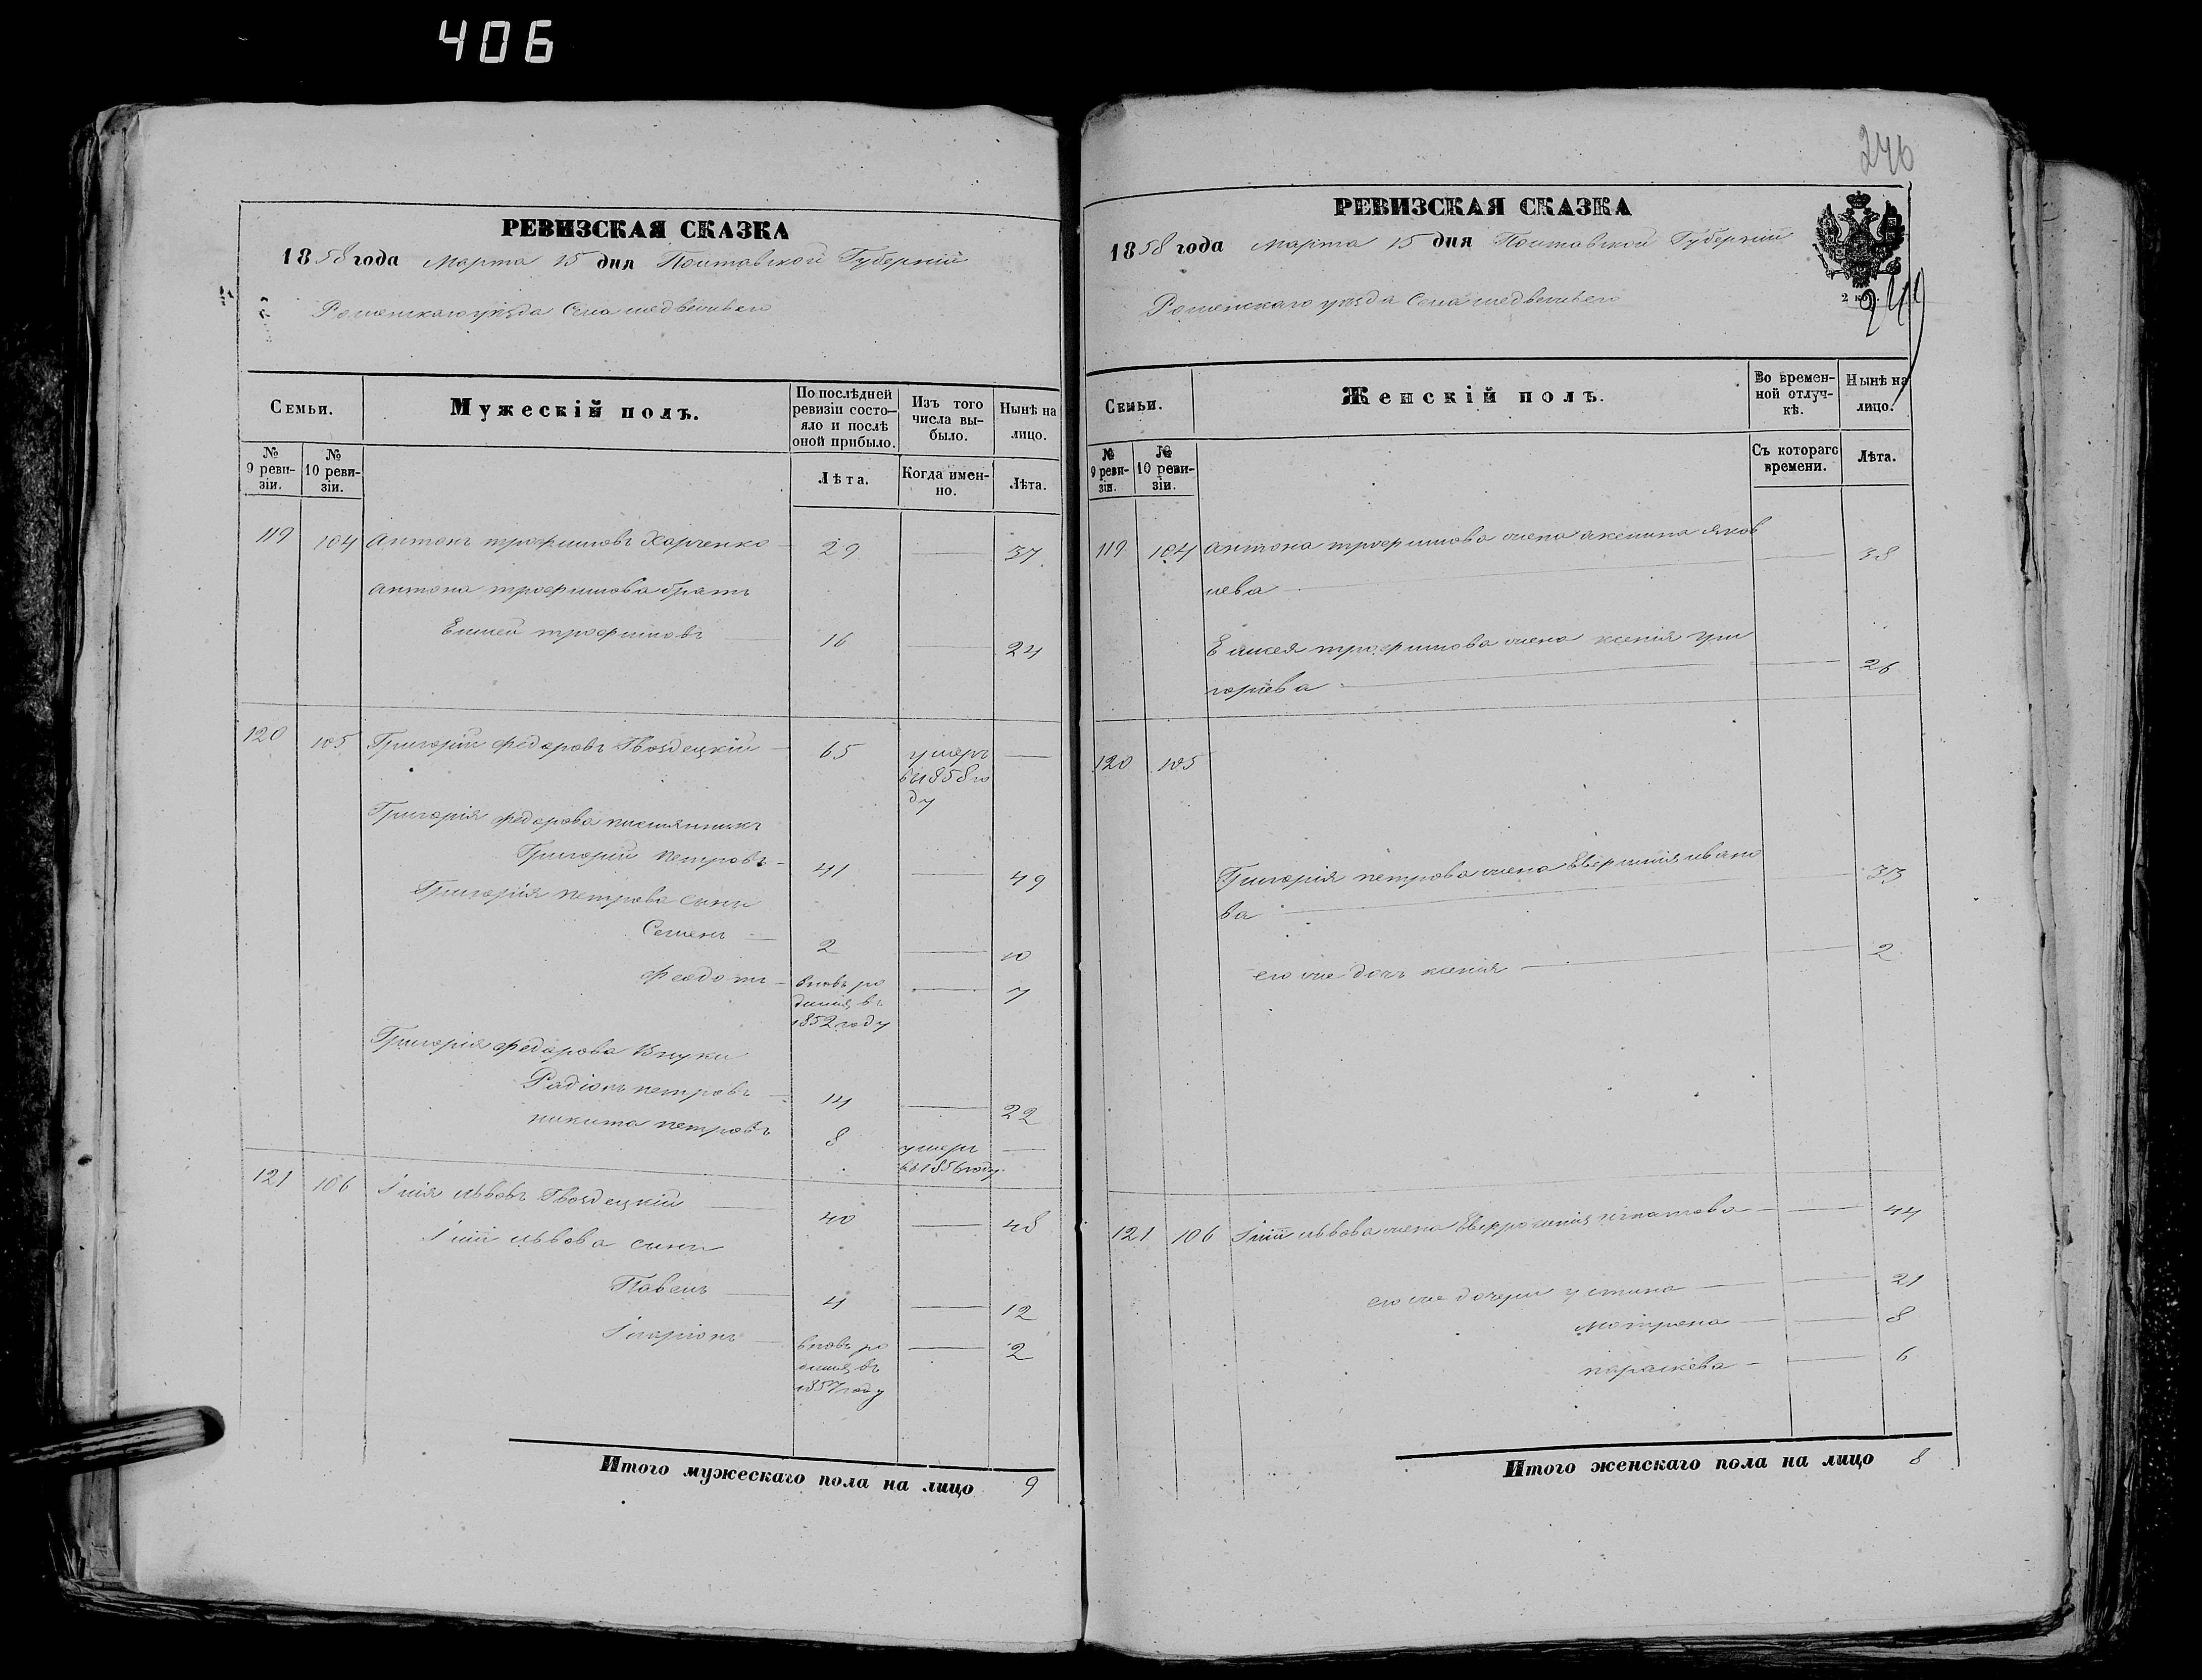 406
РЕВИЗСКАЯ СКАЗКА
1858 года Марта 15 дня Полтавской Губерніи
Роменскаго уезда Села медвежьего
Семьи.
Мужескій полъ.
По послѣдней ревизіи состо-
яло и послѣ оной прибыло.
Изъ того числа вы-
было.
Нынѣ на лицо.
№ 9 реви-
зіи.
№ 10 реви-
зіи.
Лѣта.
Когда имен-
но.
Лѣта.
119 104 Антонъ трофимовъ Харченко 29 — 37
Антона трофимова братъ
Елисей трофимовъ 16 — 24
120 105 Григорій федоровъ Гвоздецкій 65 умеръ —
в 1858 го
ду
Григорія федорова племянникъ
Григорій петровъ 41 — 49
Григорія петрова сыны
Семенъ 2 — 10
Федотъ вновь ро — 7
дился въ
1852 году
Григорія федорова Внуки
Радіонъ петровъ 14 — 22
никита петровъ 8 умеръ —
въ 1856 году
121 106 Ілія львовъ Гвоздецкій 40 — 48
Іліи львова сыны
Павелъ 4 — 12
Іларіонъ вновь ро — 2
дился въ
1857 году
Итого мужескаго пола на лицо 9
246
РЕВИЗСКАЯ СКАЗКА
1858 года Марта 15 дня Полтавской Губерніи
Роменскаго уезда Села медвежьего
2 коп.
Семьи.
Женскій полъ.
Во времен-
ной отлуч-
кѣ.
Нынѣ на лицо.
№ 9 реви-
зіи.
№ 10 реви-
зіи.
Съ котораго времени.
Лѣта.
119 104 Антона трофимова жена акелина яков — 38
лева
Елисея трофимова жена ксенія гри — 26
горіева
120 105
Григорія петрова жена ивано — 33
ва
его же дочь ксенія — 2
121 106 Іліи львова жена Евфросинія игнатова — 44
его же дочери устина — 21
мотрона — 8
параскева — 6
Итого женскаго пола на лицо 8